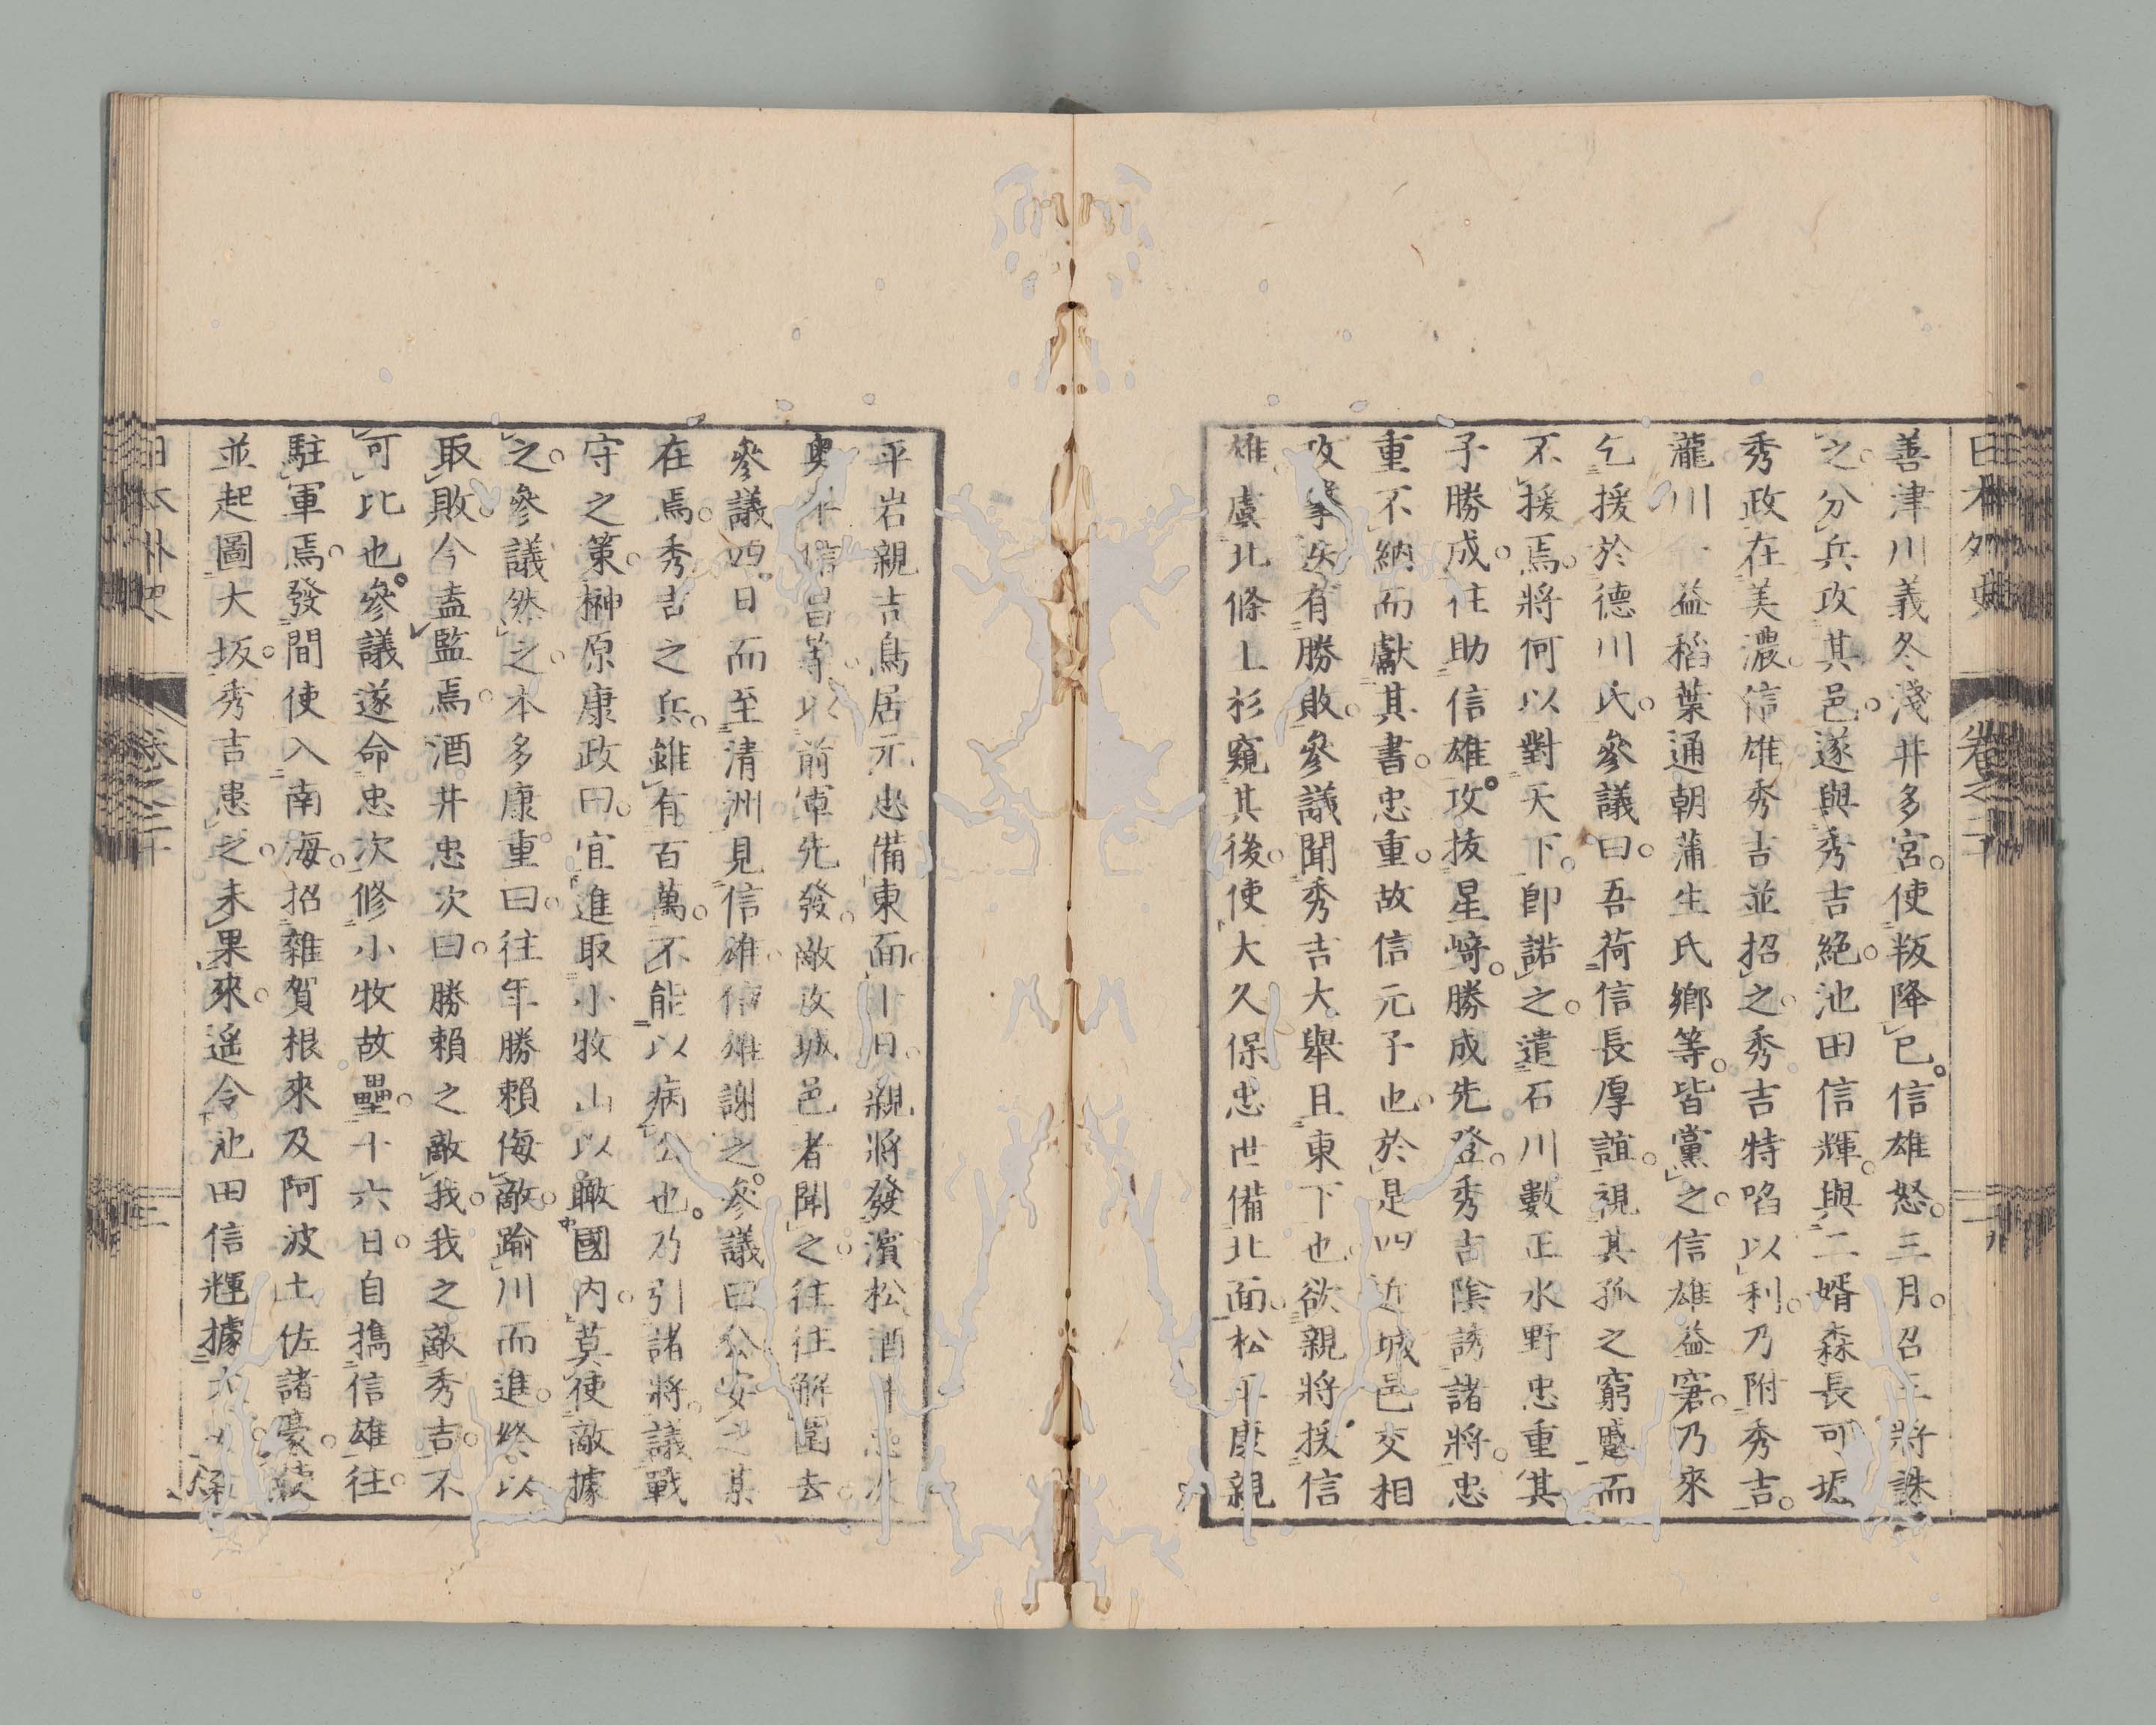 日本外史
卷之二十
善津川義冬淺井多宮。使叛降己。信雄怒。三月。召三將誅
之。分兵攻其邑。遂與秀吉絶。池田信輝。與二婿森長可堀
秀政在美濃。信雄秀吉並招之。秀吉特啗以利。乃附秀吉。
瀧川一益稻葉通朝蒲生氏鄉等。皆黨之。信雄益窘。乃來
乞援於德川氏。參議曰。吾荷信長厚誼。視其孤之窮蹙而
不援焉。將何以對天下。即諾之。遣石川數正水野忠重其
子勝成。往助信雄。攻拔星﨑。勝成先登。秀吉陰誘諸將。忠
重不納而獻其書。忠重。故信元子也。於是四近城邑交相
攻擊。迭有勝敗。參議聞秀吉大舉且東下也。欲親將援信
雄。虞北條上杉窺其後。使大久保忠世備北面。松平康親
平岩親吉鳥居元忠備東面。十日。親將發濱松。酒井忠次
奧平信昌等。以前軍先發。敵攻城邑者聞之。往往解圍去。
參議四日而至清洲。見信雄。信雄謝之。參議曰。公安之。某
在焉。秀吉之兵。雖有百萬。不能以病公也。乃引諸將。議戰
守之策。榊原康政曰。宜進取小牧山以瞰國內。莫使敵據
之。參議然之。本多康重曰。往年勝賴侮敵。踰川而進。終以
取敗。今盍監焉。酒井忠次曰。勝賴之敵我。我之敵秀吉。不
可比也。參議遂命忠次修小牧故壘。十六日。自擕信雄往
駐軍焉。發間使入南海。招雜賀根來及阿波土佐諸豪。使
並起圖大坂。秀吉患之。未果來。遥令池田信輝據犬山。森
日本外史
卷之二十
二